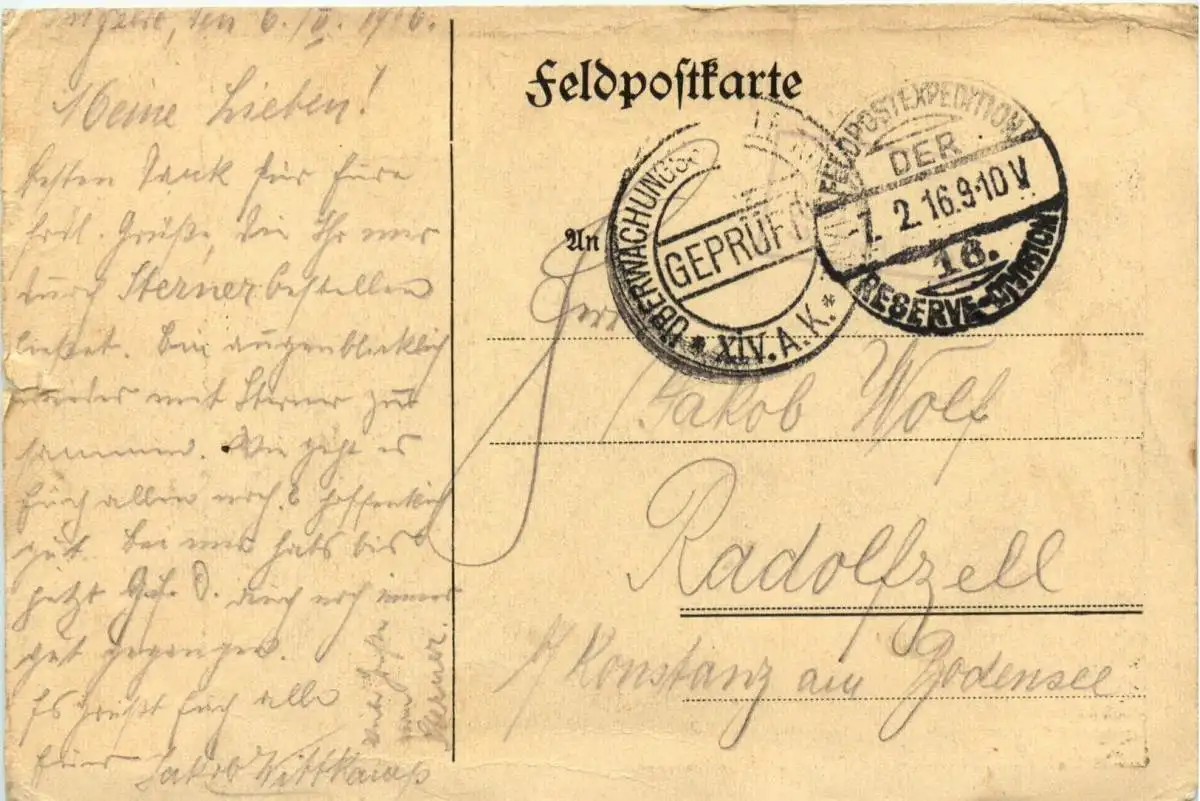 den 6./II. 1916.
Meine Lieben!
besten Dank für Eure
frdl. Grüße, die Ihr mir
durch Sterner bestellen
ließet. Bin augenblicklich
wieder mit Sterner zu
sammen. Wie geht es
Euch allen noch? hoffentlich
gut. Bei mir hats bis
jetzt G. s. D. auch noch immer
gut gegangen.
Es grüßt Euch alle
Euer Jakob Wittkamp
von
Sterner.
Feldpostkarte
An
ÜBERWACHUNGS
GEPRÜFT
* XIV. A. K. *
FELDPOSTEXPEDITION
DER
-7.2.16.9-10 V.
RESERVE-DIVISION
Herrn
Jakob Wolf
Radolfzell
b/ Konstanz am Bodensee